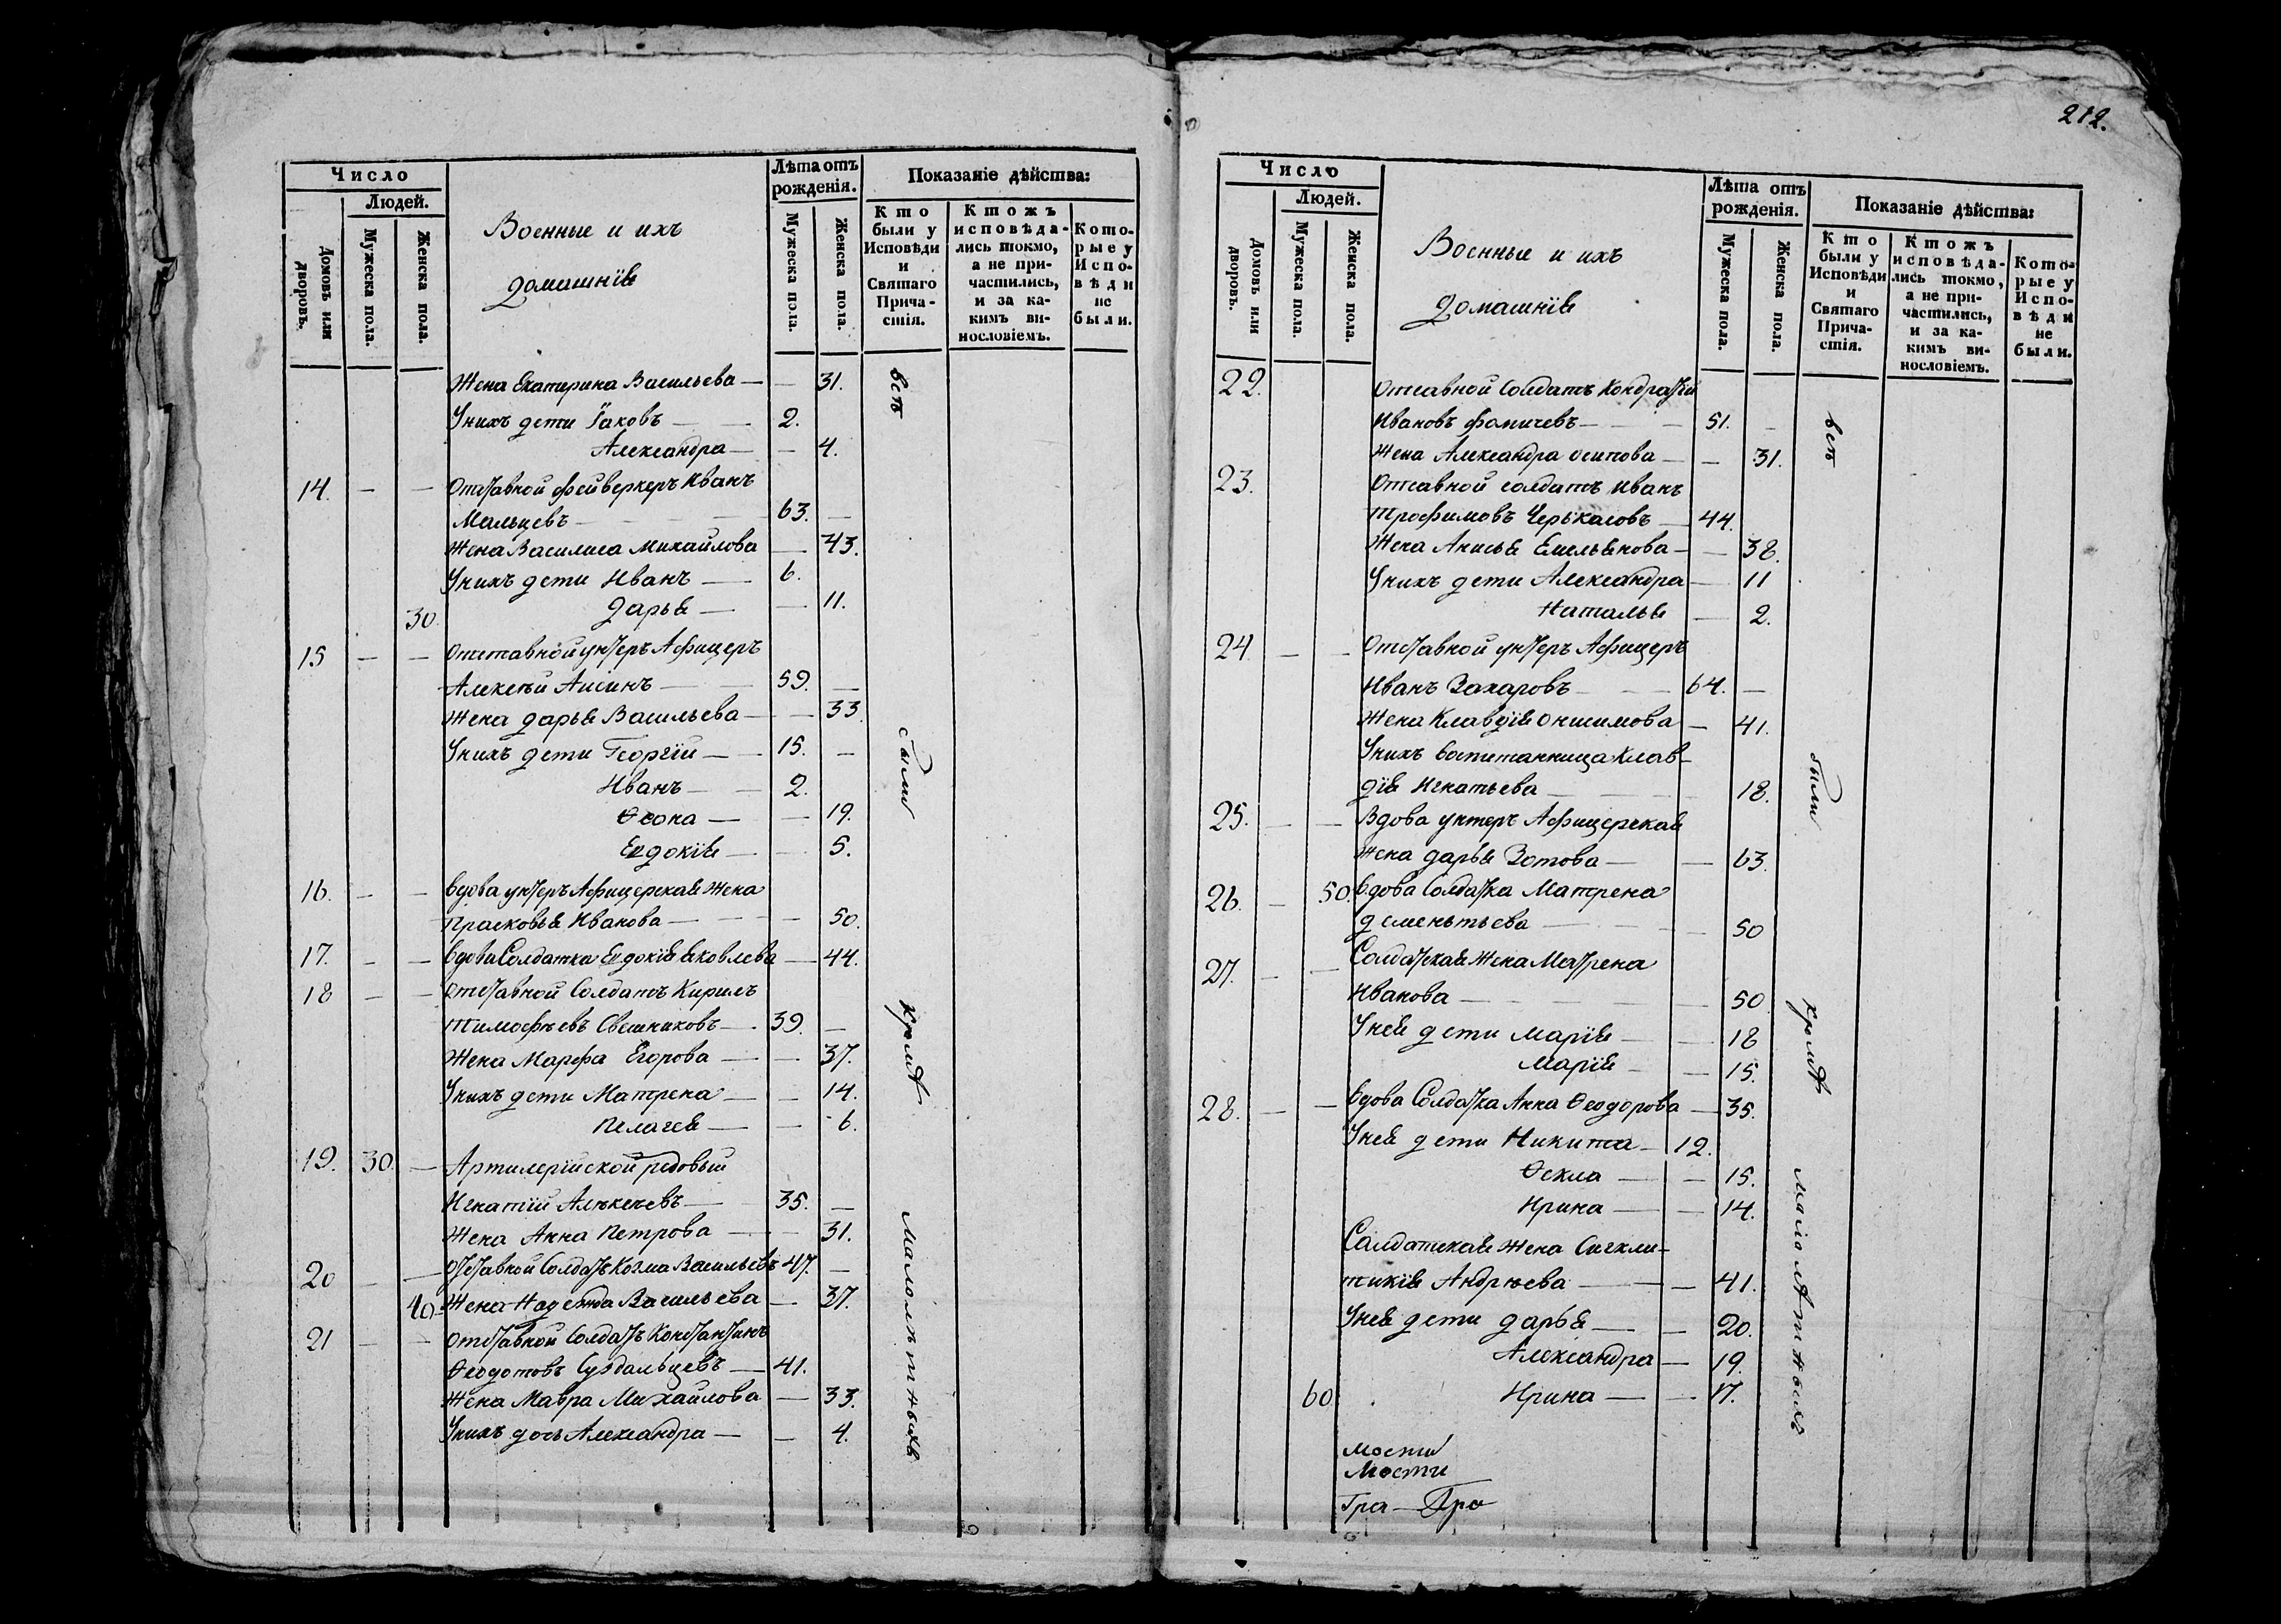 Число
Людей.
Домовъ или дворовъ.
Мужеска пола.
Женска пола.
Военные и ихъ
домашнїе
Лѣта отъ рожденія.
Мужеска пола.
Женска пола.
Показаніе дѣйства:
Кто были у Исповѣди и Святаго Прича-стія.
Ктожъ исповѣда-лись токмо, а не при-частились, и за ка-кимъ ви-нословіемъ.
Кото-рые у Испо-вѣди не были.
Жена Екатерина Васильева — — 31.
Унихъ дети Іаковъ — 2.
Александра — — 4.
14. — — Отставной фейверкеръ Иванъ
Мальцевъ — 63. —
Жена Василиса Михайлова — 43.
Унихъ дети Иванъ — 6.
30. Дарья — — 11.
15 — — Отставной унтеръ Афицеръ
Алексѣй — 59. —
Жена дарья Васильева — — 33.
Унихъ дети Георгїй — 15. —
Иванъ — 2.
Ѳеона — — 19.
Евдокїя — — 5.
16. — — Вдова унтеръ Афицерская Жена
Прасковья Иванова — — 50.
17. — — Вдова Солдатка Евдокїя Яковлева — 44.
18 — — Отставной Солдатъ Кирилъ
Тимофѣевъ Свешниковъ — 39. —
Жена Марфа Егорова — — 37.
Унихъ дети Матрена — — 14.
Пелагея — — 6.
19. 30. — Артилерїйской редовый
Игнатїй — 35. —
Жена Анна Петрова — — 31.
20 — — Отставной Солдатъ Козма Васильевъ 47. —
40. Жена Надежда Васильева — 37.
21 — — Отставной Солдатъ Константинъ
Ѳеодотовъ Суздальцевъ — 41.
Жена Мавра Михайлова — 33.
Унихъ дочь Александра — — 4.
всѣ
были
кромѣ
малолѣтныхъ
212.
Число
Людей.
Домовъ или дворовъ.
Мужеска пола.
Женска пола.
Военные и ихъ
домашнїе
Лѣта отъ рожденія.
Мужеска пола.
Женска пола.
Показаніе дѣйства:
Кто были у Исповѣди и Святаго Прича-стія.
Ктожъ исповѣда-лись токмо, а не при-частились, и за ка-кимъ ви-нословіемъ.
Кото-рые у Испо-вѣди не были.
22. Отсавной Солдатъ Кондратій
Ивановъ Фомичевъ — 51. —
Жена Александра Осипова — — 31.
23. Отсавной солдатъ Иванъ
Трофимовъ Черькасовъ — 44.
Жена Анисья Емельянова — — 38.
Унихъ дети Александра — 11
Наталья — 2.
24 — — Отставной унтеръ Афицеръ
Иванъ Захаровъ — 64. —
Жена Клавдїя Онисимова — 41.
Унихъ воспитанница Клав-
дїя Игнатьева — 18.
25. — — Вдова унтеръ Афицерская
Жена дарья Зотова — — 63.
26. — 50. Вдова Солдатка Матрена
деменьтьева — — 50
27. — — Солдатская Жена Матрена
Иванова — — 50
Унея дети Марїя — — 18
Марїя — — 15.
28. — — Вдова Солдатка Анна Ѳеодорова — 35.
Унея дети Никита — 12.
Ѳекла — — 15.
Ирина — — 14.
Салдатская Жена Сигкли-
тикїя Андрѣева — — 41.
Унея дети дарья — — 20.
Александра — 19.
60 Ирина — — 17.
мости
Мости
Гра — Гра
всѣ
были
кромѣ
малолѣтныхъ